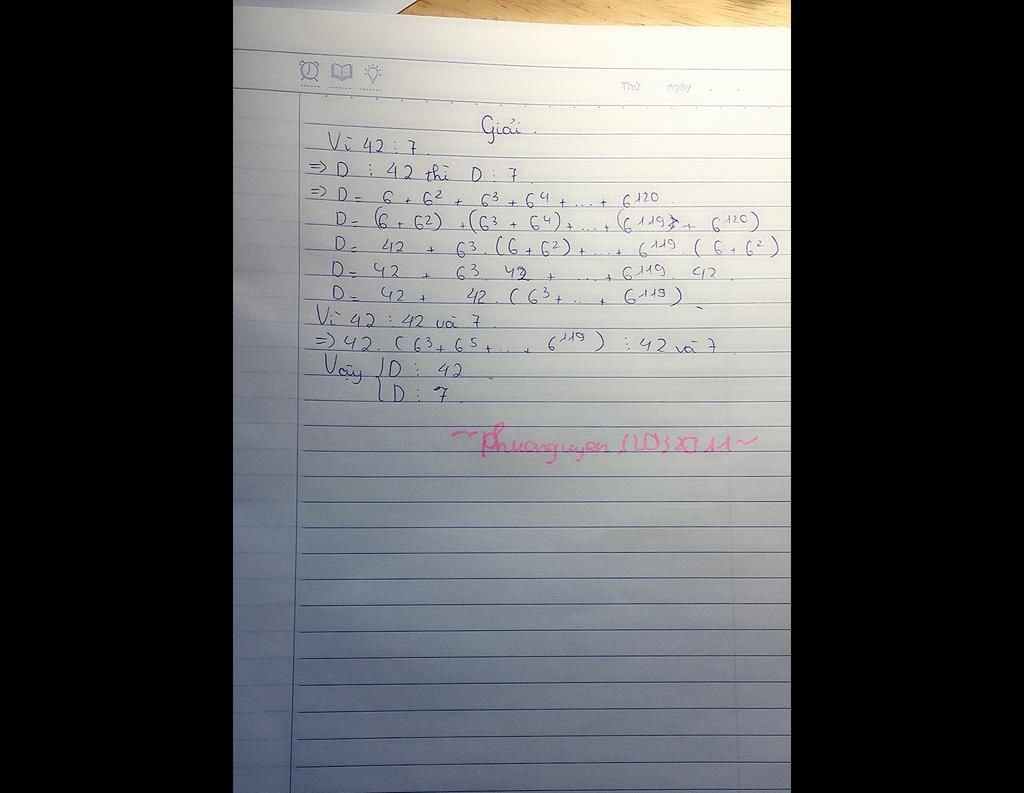 Thứ ngày . .
Giải.
Vì 42 ⋮ 7.
=> D ⋮ 42 thì D ⋮ 7.
=> D = 6 + 6² + 6³ + 6⁴ + ... + 6¹²⁰.
D = (6 + 6²) + (6³ + 6⁴) + ... + (6¹¹⁹ + 6¹²⁰)
D = 42 + 6³. (6 + 6²) + ... + 6¹¹⁹. (6 + 6²)
D = 42 + 6³. 42 + ... + 6¹¹⁹. 42
D = 42 + 42. (6³ + ... + 6¹¹⁹).
Vì 42 ⋮ 42 và 7.
=> 42. (6³ + 6⁵ + ... + 6¹¹⁹) ⋮ 42 và 7.
Vậy { D ⋮ 42
D ⋮ 7.